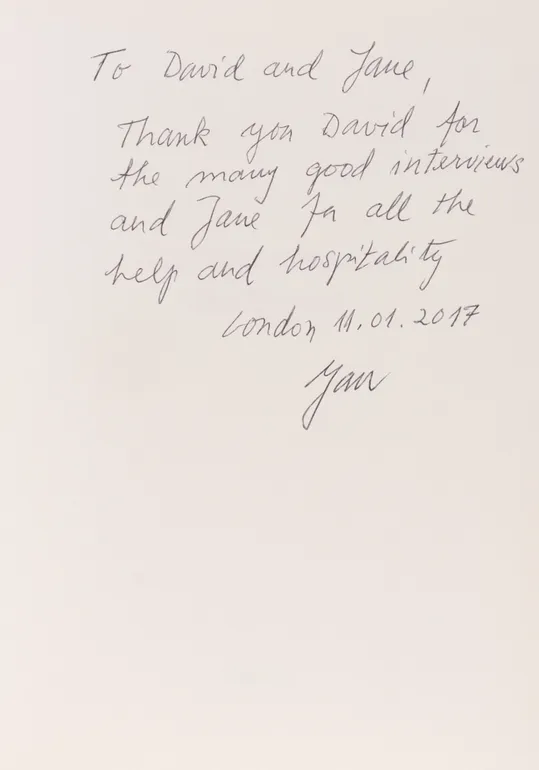 To David and Jane,
Thank you David for
the many good interviews
and Jane for all the
help and hospitality
London 11.01.2017
Jan